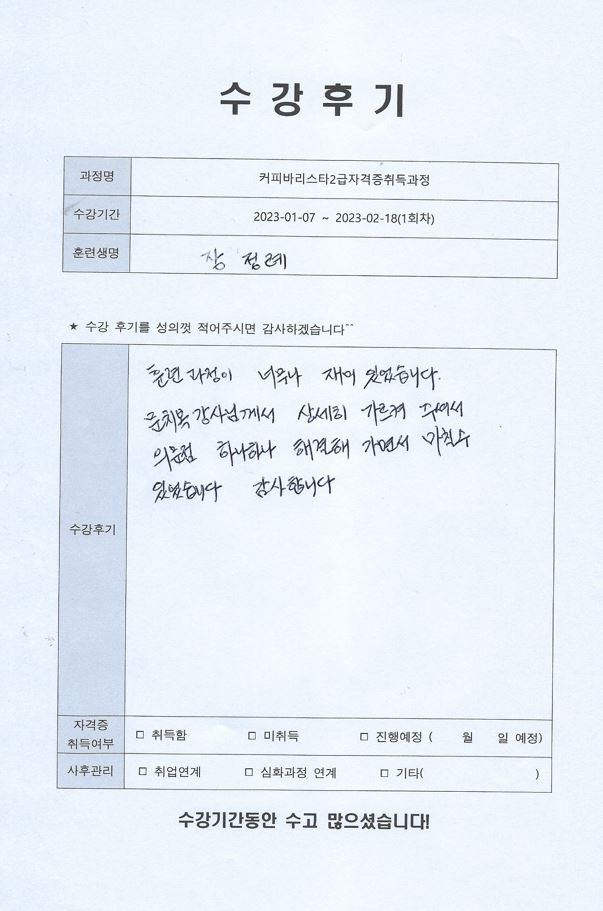 수강후기
과정명 커피바리스타2급자격증취득과정
수강기간 2023-01-07 ~ 2023-02-18(1회차)
훈련생명 장정례
★ 수강 후기를 성의껏 적어주시면 감사하겠습니다^^
훈련과정이 너무나 재미 있었습니다.
문치목 강사님께서 상세히 가르켜 주셔서
의문점 하나하나 해결해 가면서 마칠수
있었습니다 감사합니다
수강후기
자격증
취득여부 □ 취득함 □ 미취득 □ 진행예정 ( 월 일 예정)
사후관리 □ 취업연계 □ 심화과정 연계 □ 기타( )
수강기간동안 수고 많으셨습니다!